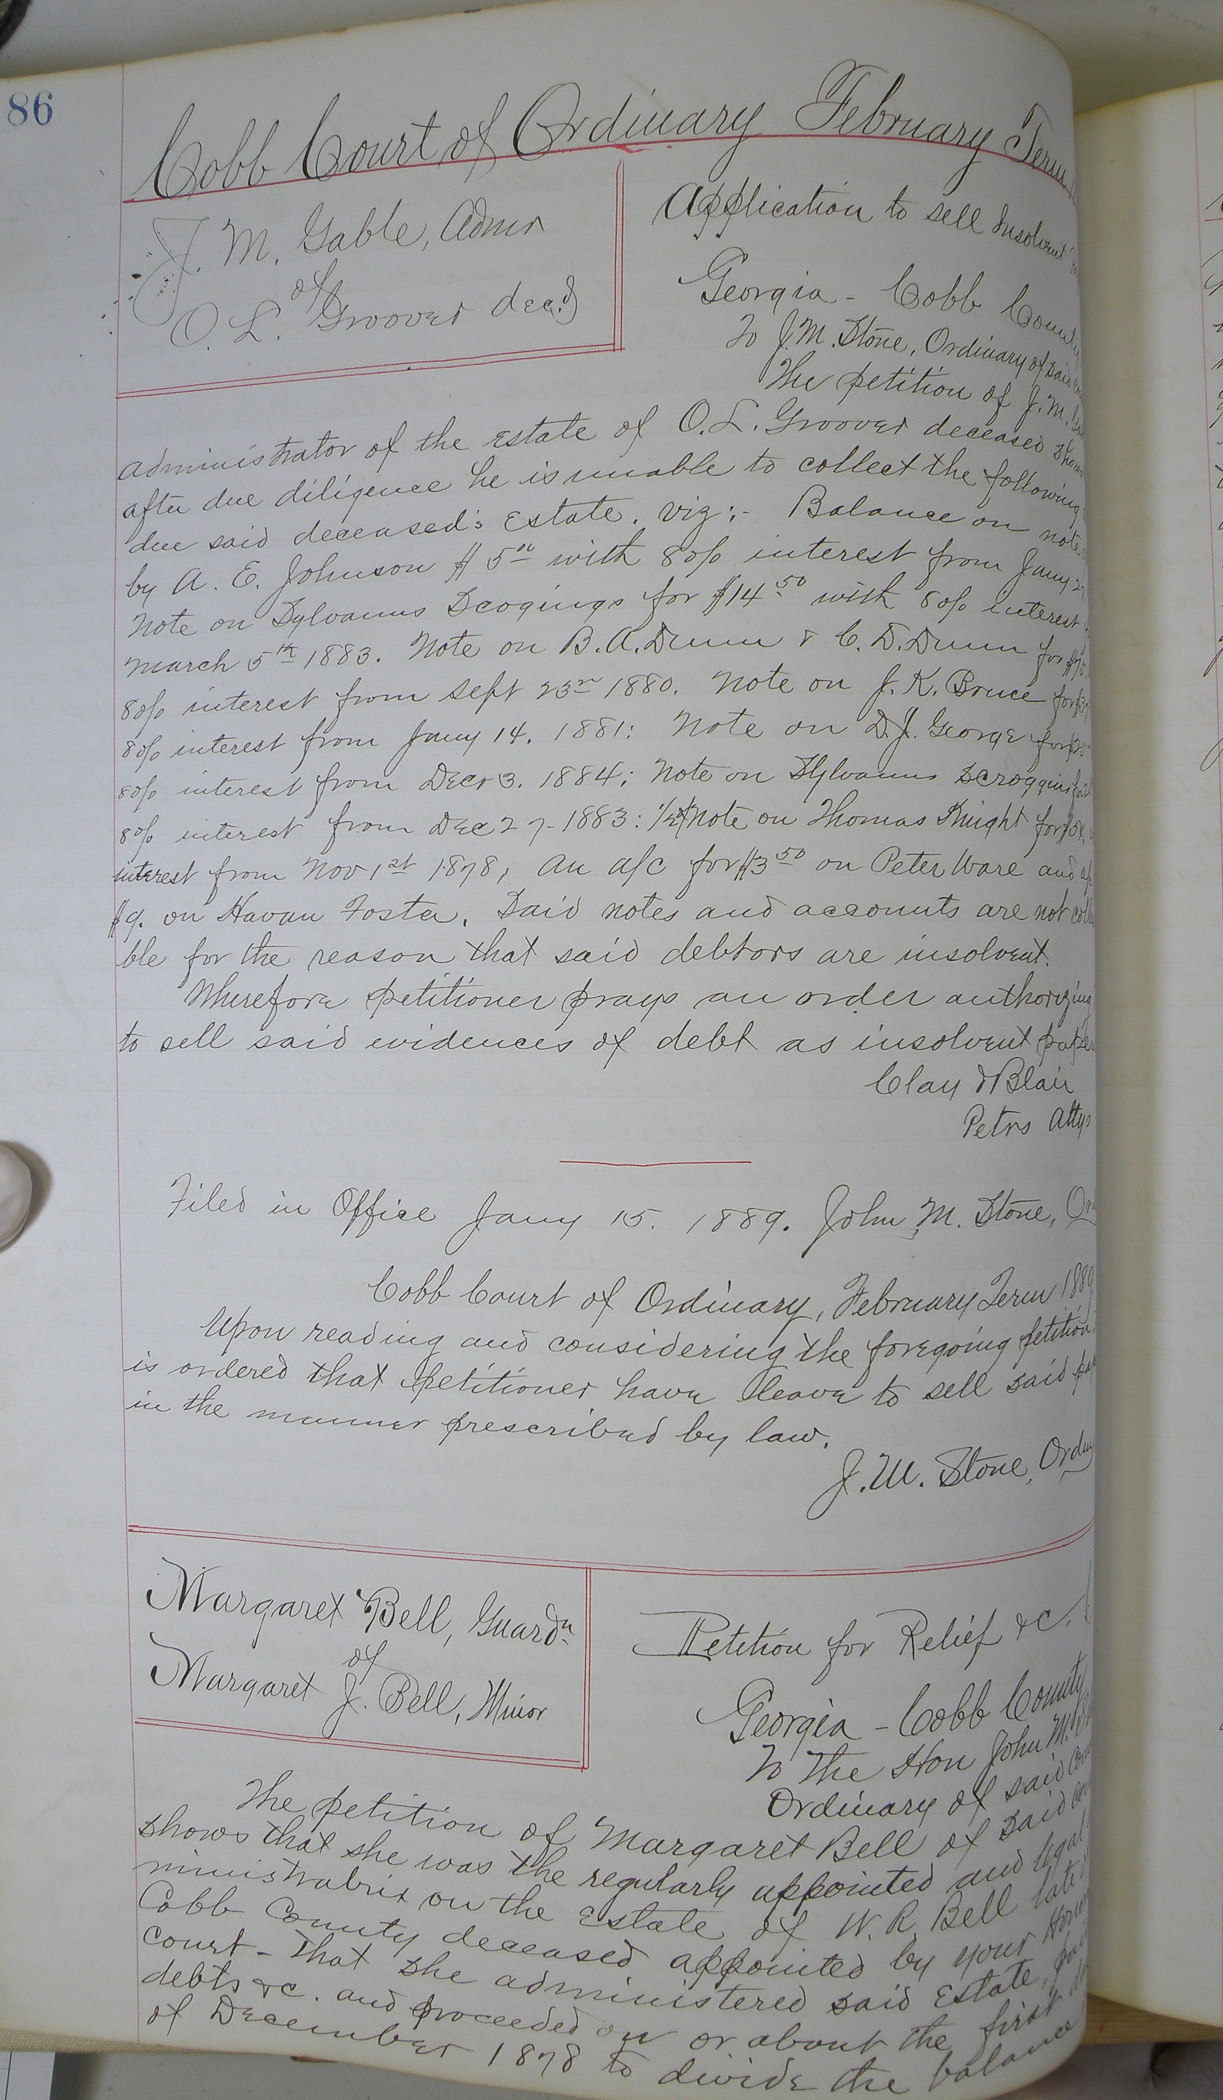 86
Cobb Court of Ordinary February Term
J. M. Gable, Admr
of
O. L. Groover decd
Application to sell Insolvent
Georgia - Cobb County
To J. M. Stone, Ordinary of said
The petition of J. M.
administrator of the estate of O. L. Groover deceased shows
after due diligence he is unable to collect the following
due said deceased's Estate. viz:- Balance on note
by A. E. Johnson $5 00 with 8 0/0 interest from Jany
Note on Sylvanus Scogings for $14 50 with 8 0/0 interest
March 5th 1883. Note on B. A. Dunn & C. D. Dunn for
8 0/0 interest from Sept 23rd 1880. Note on J. K. Bruce for
8 0/0 interest from Jany 14. 1881: Note on D. J. George for
8 0/0 interest from Decr 3. 1884; Note on Sylvanus Scroggins
8 0/0 interest from Dec 27 - 1883: 1/2 Note on Thomas Knight for
interest from Nov 1st 1878, An a/c for $3 50 on Peter Ware and
$9. on Havan Foster. Said notes and accounts are not
ble for the reason that said debtors are insolvent.
Wherefore petitioner prays an order authorizing
to sell said evidences of debt as insolvent
Clay & Blair
Petrs Attys
Filed in Office Jany 15. 1889. John M. Stone,
Cobb Court of Ordinary, February Term 1889
Upon reading and considering the foregoing petition
is ordered that petitioner have leave to sell said
in the manner prescribed by law.
J. M. Stone, Ordny
Margaret Bell, Guardn
of
Margaret J. Bell, Minor
Petition for Relief &c.
Georgia - Cobb County
To The Hon John M.
Ordinary of said
The petition of Margaret Bell of said
shows that she was the regularly appointed and legal
ministratrix on the Estate of W. R. Bell late
Cobb County deceased appointed by your Honor
court - that she administered said Estate,
debts &c. and proceeded on or about the first
of December 1878 to divide the balance